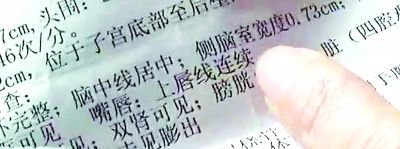 7cm, 头围:
16次/分。
位于子宫底部至后壁
2cm,
查:
脑中线居中; 侧脑室宽度0.73cm;
完整; 嘴唇: 上唇线连续
可见; 双肾可见; 膀胱
脏 (四腔
见膨出